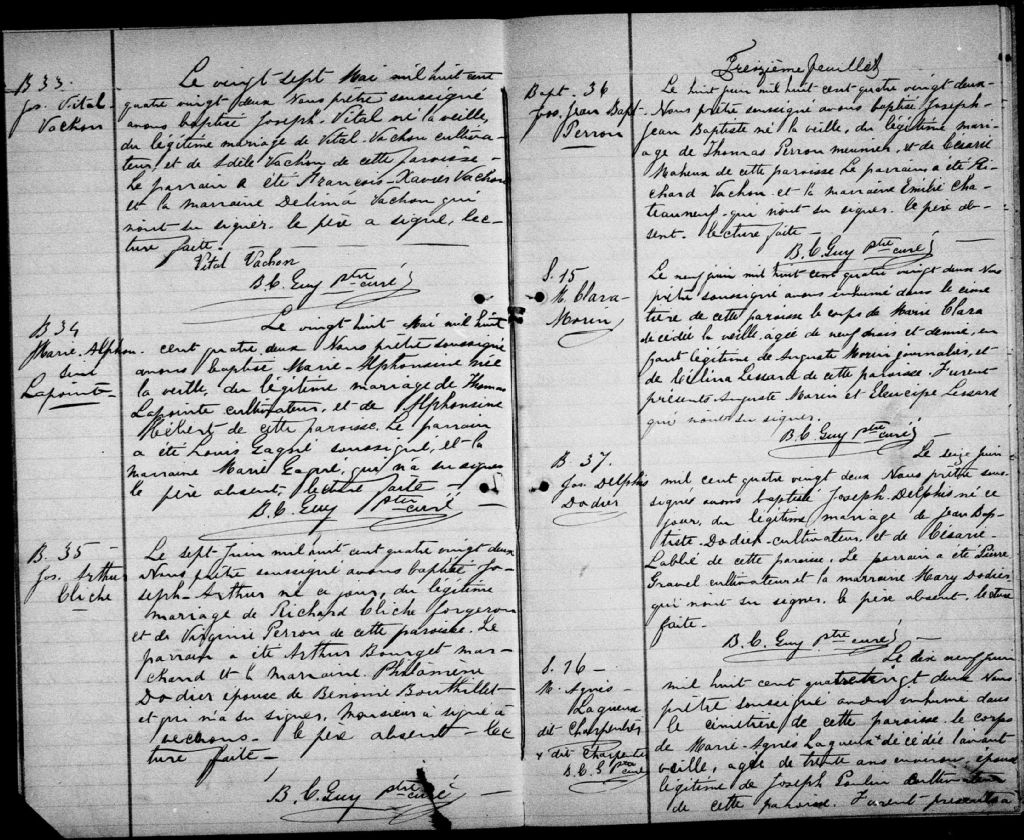 B 33.
Jos. Vital
Vachon
Le vingt sept Mai mil huit cent
quatre vingt deux Nous prêtre soussigné
avons baptisé Joseph. Vital né la veille,
du légitime mariage de Vital Vachon cultiva-
teur et de Adèle Vachon de cette paroisse -
Le parrain a été François-Xavier Vachon
et la marraine Delima Vachon qui
n'ont su signer. le père a signé, lec-
ture faite.
Vital Vachon
B. C. Guy ptre curé
B 34
Marie. Alphon-
sine
Lapointe
Le vingt huit Mai mil huit
cent quatre deux Nous prêtre soussigné
avons baptisé Marie-Alphonsine née
la veille, du légitime mariage de Thomas
Lapointe cultivateur, et de Alphonsine
Hébert de cette paroisse. Le parrain
a été Louis Gagné soussigné, et la
marraine Marie Gagné, qui n'a su signer
le père absent, lecture faite -
B. C. Guy ptre curé
B. 35 -
Jos. Arthur
Cliche
Le sept Juin mil huit cent quatre vingt deux
Nous prêtre soussigné avons baptisé Jo-
seph-Arthur né ce jour, du légitime
mariage de Richard Cliche forgeron
et de Virginie Perron de cette paroisse. Le
parrain a été Arthur Bourget mar-
chand et la marraine Philomène
Dodier épouse de Bénonie Bouthillet-
te qui n'a su signer, Monsieur a signé à
le père absent - lec
ture faite -
B. C. Guy ptre curé
Treizième feuillet
Bapt. 36
Jos. Jean Bapt.
Perron
Le huit juin mil huit cent quatre vingt deux-
Nous prêtre soussigné avons baptisé Joseph-
Jean Baptiste né la veille, du légitime mari-
age de Thomas Perron meunier, et de Césarie
Maheux de cette paroisse Le parrain a été Ri-
chard Vachon et la marraine Emilie Cha-
teauneuf. qui n'ont su signer. le père ab-
sent. lecture faite -
B. C. Guy ptre curé
S. 15
M. Clara-
Morin
Le neuf juin mil huit cent quatre vingt deux Nous
prêtre soussigné avons inhumé dans le cime
tière de cette paroisse le corps de Marie Clara
décédée la veille, agée de neuf mois et demie, en
fant légitime de Auguste Morin journalier, et
de Célina Lessard de cette paroisse. Furent
présents Auguste Morin et Eleucipe Lessard
qui n'ont su signer.
B. C. Guy ptre curé
B. 37.
Jos. Delphis
Dodier
Le seize juin
mil cent quatre vingt deux Nous prêtre sous-
signé avons baptisé Joseph-Delphis né ce
jour, du légitime mariage de Jean Bap-
tiste. Dodier cultivateur, et de Césarie-
Labbé de cette paroisse. Le parrain a été Pierre
Gravel cultivateur et la marraine Mary Dodier
qui n'ont su signer. le père absent. lecture
faite -
B. C. Guy ptre curé
S. 16 -
M. Agnès-
Laqueux
dit Charpentier
+ dit Charpentier
B. C. G ptre curé
Le dix neuf juin
mil huit cent quatrevingt deux Nous
prêtre soussigné avons inhumé dans
le cimetière de cette paroisse le corps
de Marie-Agnès Laqueux + décédée l'avant
veille, agée de trente ans environ, épouse
légitime de Joseph Poulin cultivateur
de cette paroisse. Furent présents a